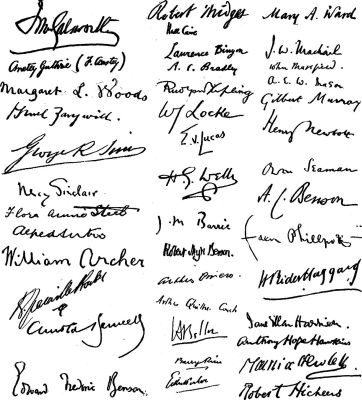 John Galsworthy
Anstey Guthrie (F. Anstey)
Margaret L. Woods
Israel Zangwill
George R Sims
May Sinclair
Flora Annie Steel
Alfred Sutro
William Archer
H. Granville Barker
Arnold Bennett
Edward Frederic Benson
Robert Bridges
Hall Caine
Laurence Binyon
A. C. Bradley
Rudyard Kipling
W J Locke
E. V. Lucas
H. G. Wells
J. M. Barrie
Robert Hugh Benson
Arthur Quiller Couch
Mary A. Ward
J. W. Mackail
John Masefield
A. E. W. Mason
Gilbert Murray
Henry Newbolt
Owen Seaman
A. C. Benson
Eden Phillpotts
H Rider Haggard
Jane Ellen Harrison
Anthony Hope Hawkins
Maurice Hewlett
Robert Hichens